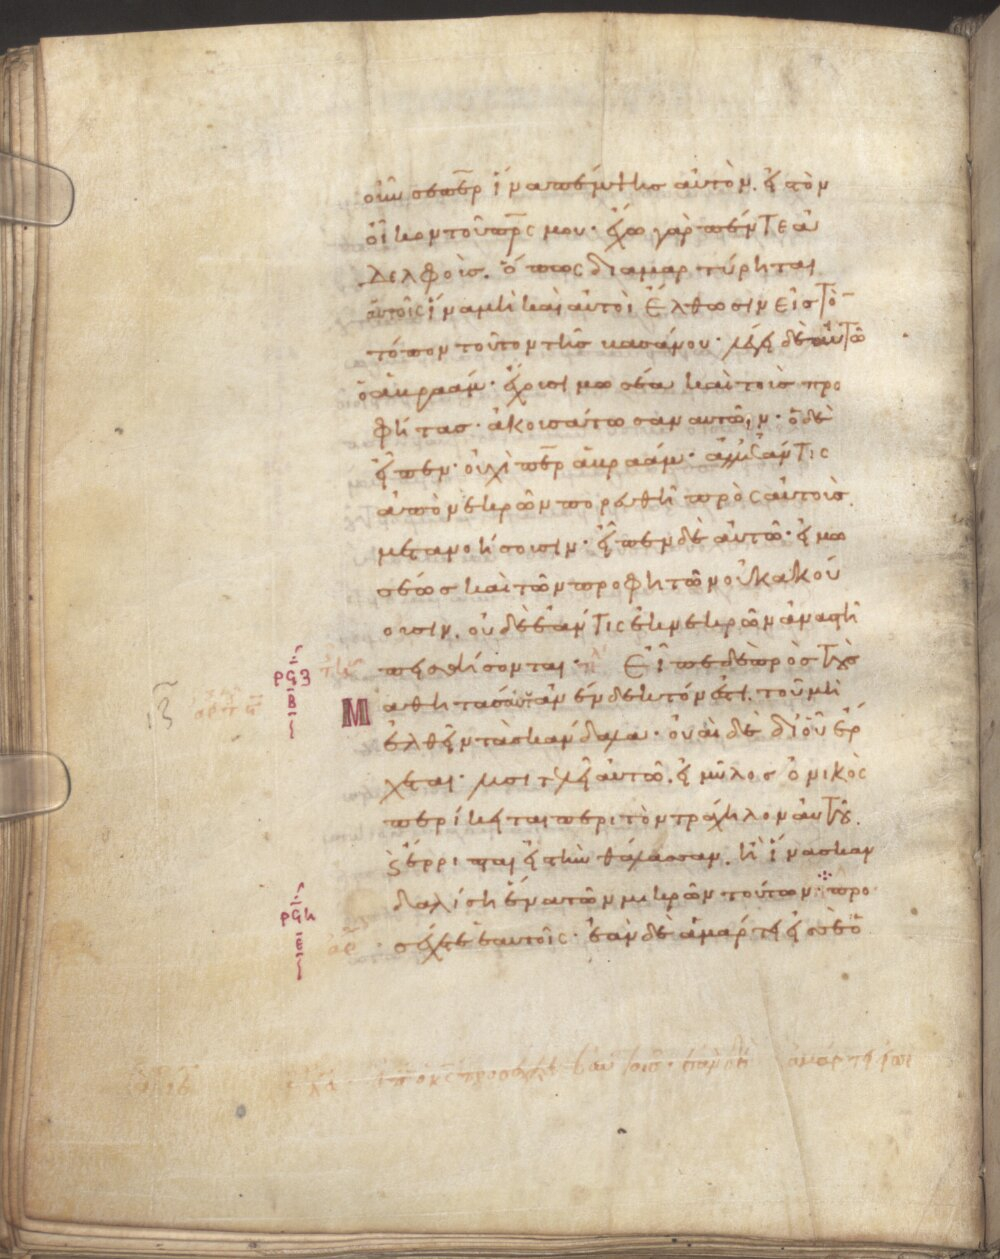 οὖν σε πε̅ρ ἵνα πέμψης αὐτὸν. εἰς τὸν
οἶκον τοῦ πρ̅ς μου· ἔχω γὰρ πέντε ἀ
δελφοὺς. ὅπως διαμαρτύρηται
αὐτοῖς ἵνα μὴ καὶ αὐτοὶ ἔλθωσιν εἰς τὸ
τόπον τοῦτον τῆς βασάνου· λέγει δὲ αὐτῶ
ὁ ἀβραάμ· ἔχουσι μωσέα καὶ τοὺς προ
φήτας· ἀκουσάτωσαν αὐτῶν· ὁ δὲ
εἶπεν· οὐχὶ πε̅ρ ἀβραάμ· ἀλλ' ἐάν τις
ἀπὸ νεκρῶν πορευθῆ πρὸς αὐτοὺς.
μετανοήσουσιν· εἶπεν δὲ αὐτῶ· εἰ μω
σέως καὶ τῶν προφητῶν οὐκ ἀκού
ουσιν. οὐδὲ ἐάν τις ἐκ νεκρῶν ἀναστῆ
πεισθήσονται· Εἶπε δὲ πρὸς τοὺς
ρϟζ
β
Μαθητὰς αὐτοῦ ἀνένδεκτόν ἐστι. τοῦ μὴ
ἐλθεῖν τὰ σκάνδαλα· οὐαὶ δὲ δι' οὗ ἔρ
χεται· λυσιτελεῖ αὐτῶ. εἰ μῦλος ὀνικὸς
περίκειται περὶ τὸν τράχηλον αὐτοῦ.
ἔρριπται εἰς τὴν θάλασσαν. ἢ ἵνα σκαν
δαλίση ἕνα τῶν μικρῶν τούτων· προ
ρϟη
ε
σέχετε ἑαυτοῖς· ἐὰν δὲ ἁμάρτη εἰς σὲ ὁ
προσέχετε ἑαυτοῖς· ἐὰν δὲ ἁμάρτη εἰς σε